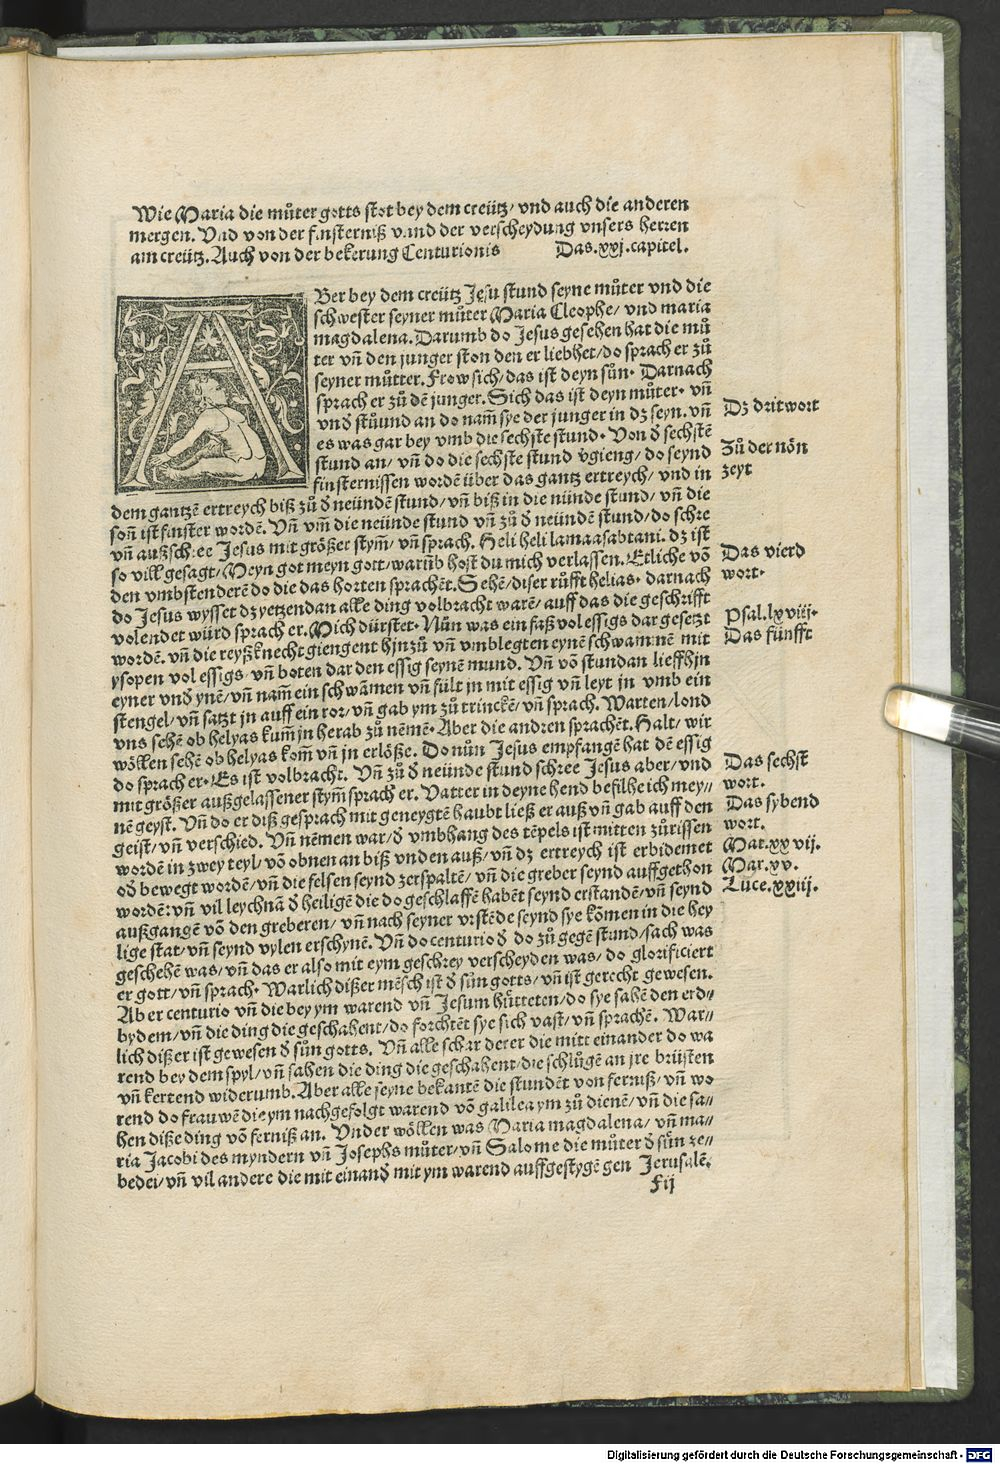 Wie Maria die můter gotts stet bey dem creütz/ vnd auch die anderen
mergen. Vnd von der finsterniß vnnd der verscheydung vnsers herren
am creütz. Auch von der bekerung Centurionis Das .xxj. capitel.
ABer bey dem creütz Jesu stund seyne můter vnd die
schwester seyner můter Maria Cleophe/ vnd maria
magdalena. Darumb do Jesus gesehen hat die mů
ter vn̄ den junger ston den er liebhet/ do sprach er zů
seyner můtter. Frow sich/ das ist deyn sůn. Darnach
sprach er zů dē junger. Sich das ist deyn můter. vn̄
vnd̕ stůund an do nam̄ sye der junger in dz seyn. vn̄
Dz drit wort
es was gar bey vmb die sechste stund. Von d̕ sechstē
Zů der nōn
stund an/ vn̄ do die sechste stund v̄gieng/ do seynd
zeyt
finsternissen wordē über das gantz ertreych/ vnd in
dem gantzē ertreych biß zů d̕ neündē stund/ vn̄ biß in die nünde stund/ vn̄ die
son̄ ist finster wordē. Vn̄ vm̄ die neünde stund vn̄ zů d̕ neündē stund/ do schre
vn̄ außschree Jesus mit größer stym̄/ vn̄ sprach. Heli heli lamaasabtani. dz ist
so vill gesagt/ Meyn got meyn gott/ warūb host du mich verlassen. Etliche vō
Das vierd
den vmbstenderē do die das horten sprachēt. Sehē/ diser růfft helias. darnach
wort.
do Jesus wysset dz yetzendan alle ding volbracht warē/ auff das die geschrifft
volendet würd sprach er. Mich dürstet. Nůn was ein faß vol essigs dar gesetzt
Psal. lxviij.
wordē. vn̄ die reyßknecht giengent hjnzů vn̄ vmblegten eynē schwammē mit
Das fünfft
ysopen vol essigs/ vn̄ boten dar den essig seynē mund. Vn̄ vō stundan lieff hjn
eyner vnd̕ ynē/ vn̄ nam̄ ein schwāmen vn̄ fült jn mit essig vn̄ leyt jn vmb ein
stengel/ vn̄ satzt jn auff ein ror/ vn̄ gab ym zů trinckē/ vn̄ sprach. Warten/ lond
vns sehē ob helyas kum̄ jn herab zů nēmē. Aber die andren sprachēt. Halt/ wir
wöllen sehē ob helyas kom̄ vn̄ jn erlöße. Do nůn Jesus empfangē hat dē essig
do sprach er. Es ist volbracht. Vn̄ zů d̕ neünde stund schree Jesus aber/ vnd
Das sechst
mit größer außgelassener stym̄ sprach er. Vatter in deyne hend befilhe ich mey⸗
wort.
nē geyst. Vn̄ do er diß gesprach mit geneygtē haubt ließ er auß vn̄ gab auff den
Das sybend
geist/ vn̄ verschied. Vn̄ nēmen war/ d̕ vmbhang des tēpels ist mitten zůrissen
wort.
wordē in zwey teyl/ vō obnen an biß vnden auß/ vn̄ dz ertreych ist erbidemet
Mat. xxvij.
od̕ bewegt wordē/ vn̄ die felsen seynd zerspaltē/ vn̄ die greber seynd auffgethon
Mar. xv.
wordē: vn̄ vil leychnā d̕ heiligē die do geschlaffē habēt seynd erstandē/ vn̄ seynd
Luce. xxiij.
außgangē vō den greberen/ vn̄ nach seyner vrstēde seynd sye kōmen in die hey
lige stat/ vn̄ seynd vylen erschynē. Vn̄ do centurio d̕ do zů gegē stund/ sach was
geschehē was/ vn̄ das er also mit eym geschrey verscheyden was/ do glorificiert
er gott/ vn̄ sprach. Warlich dißer mēsch ist d̕ sůn gotts/ vn̄ ist gerecht gewesen.
Aber centurio vn̄ die bey ym warend vn̄ Jesum hůtteten/ do sye sahē den erd⸗
bydem/ vn̄ die ding die geschahent/ do forchtēt sye sich vast/ vn̄ sprachē. War⸗
lich dißer ist gewesen d̕ sůn gotts. Vn̄ alle schar derer die mitt einander do wa
rend bey dem spyl/ vn̄ sahen die ding die geschahent/ die schlůgē an jre brüsten
vn̄ kertend widerumb. Aber alle seyne bekantē die stundēt von ferniß/ vn̄ wo
rend do frauwē die ym nachgefolgt warend vō galilea ym zů dienē/ vn̄ die sa⸗
hen diße ding vō ferniß an. Vnder wöllen was Maria magdalena/ vn̄ ma⸗
ria Jacobi des myndern vn̄ Josephs můter/ vn̄ Salome die můter d̕ sůn ze⸗
bedei/ vn̄ vil andere die mit einand̕ mit ym warend auffgestygē gen Jerusalē.
F ij
Digitalisierung gefördert durch die Deutsche Forschungsgemeinschaft - DFG